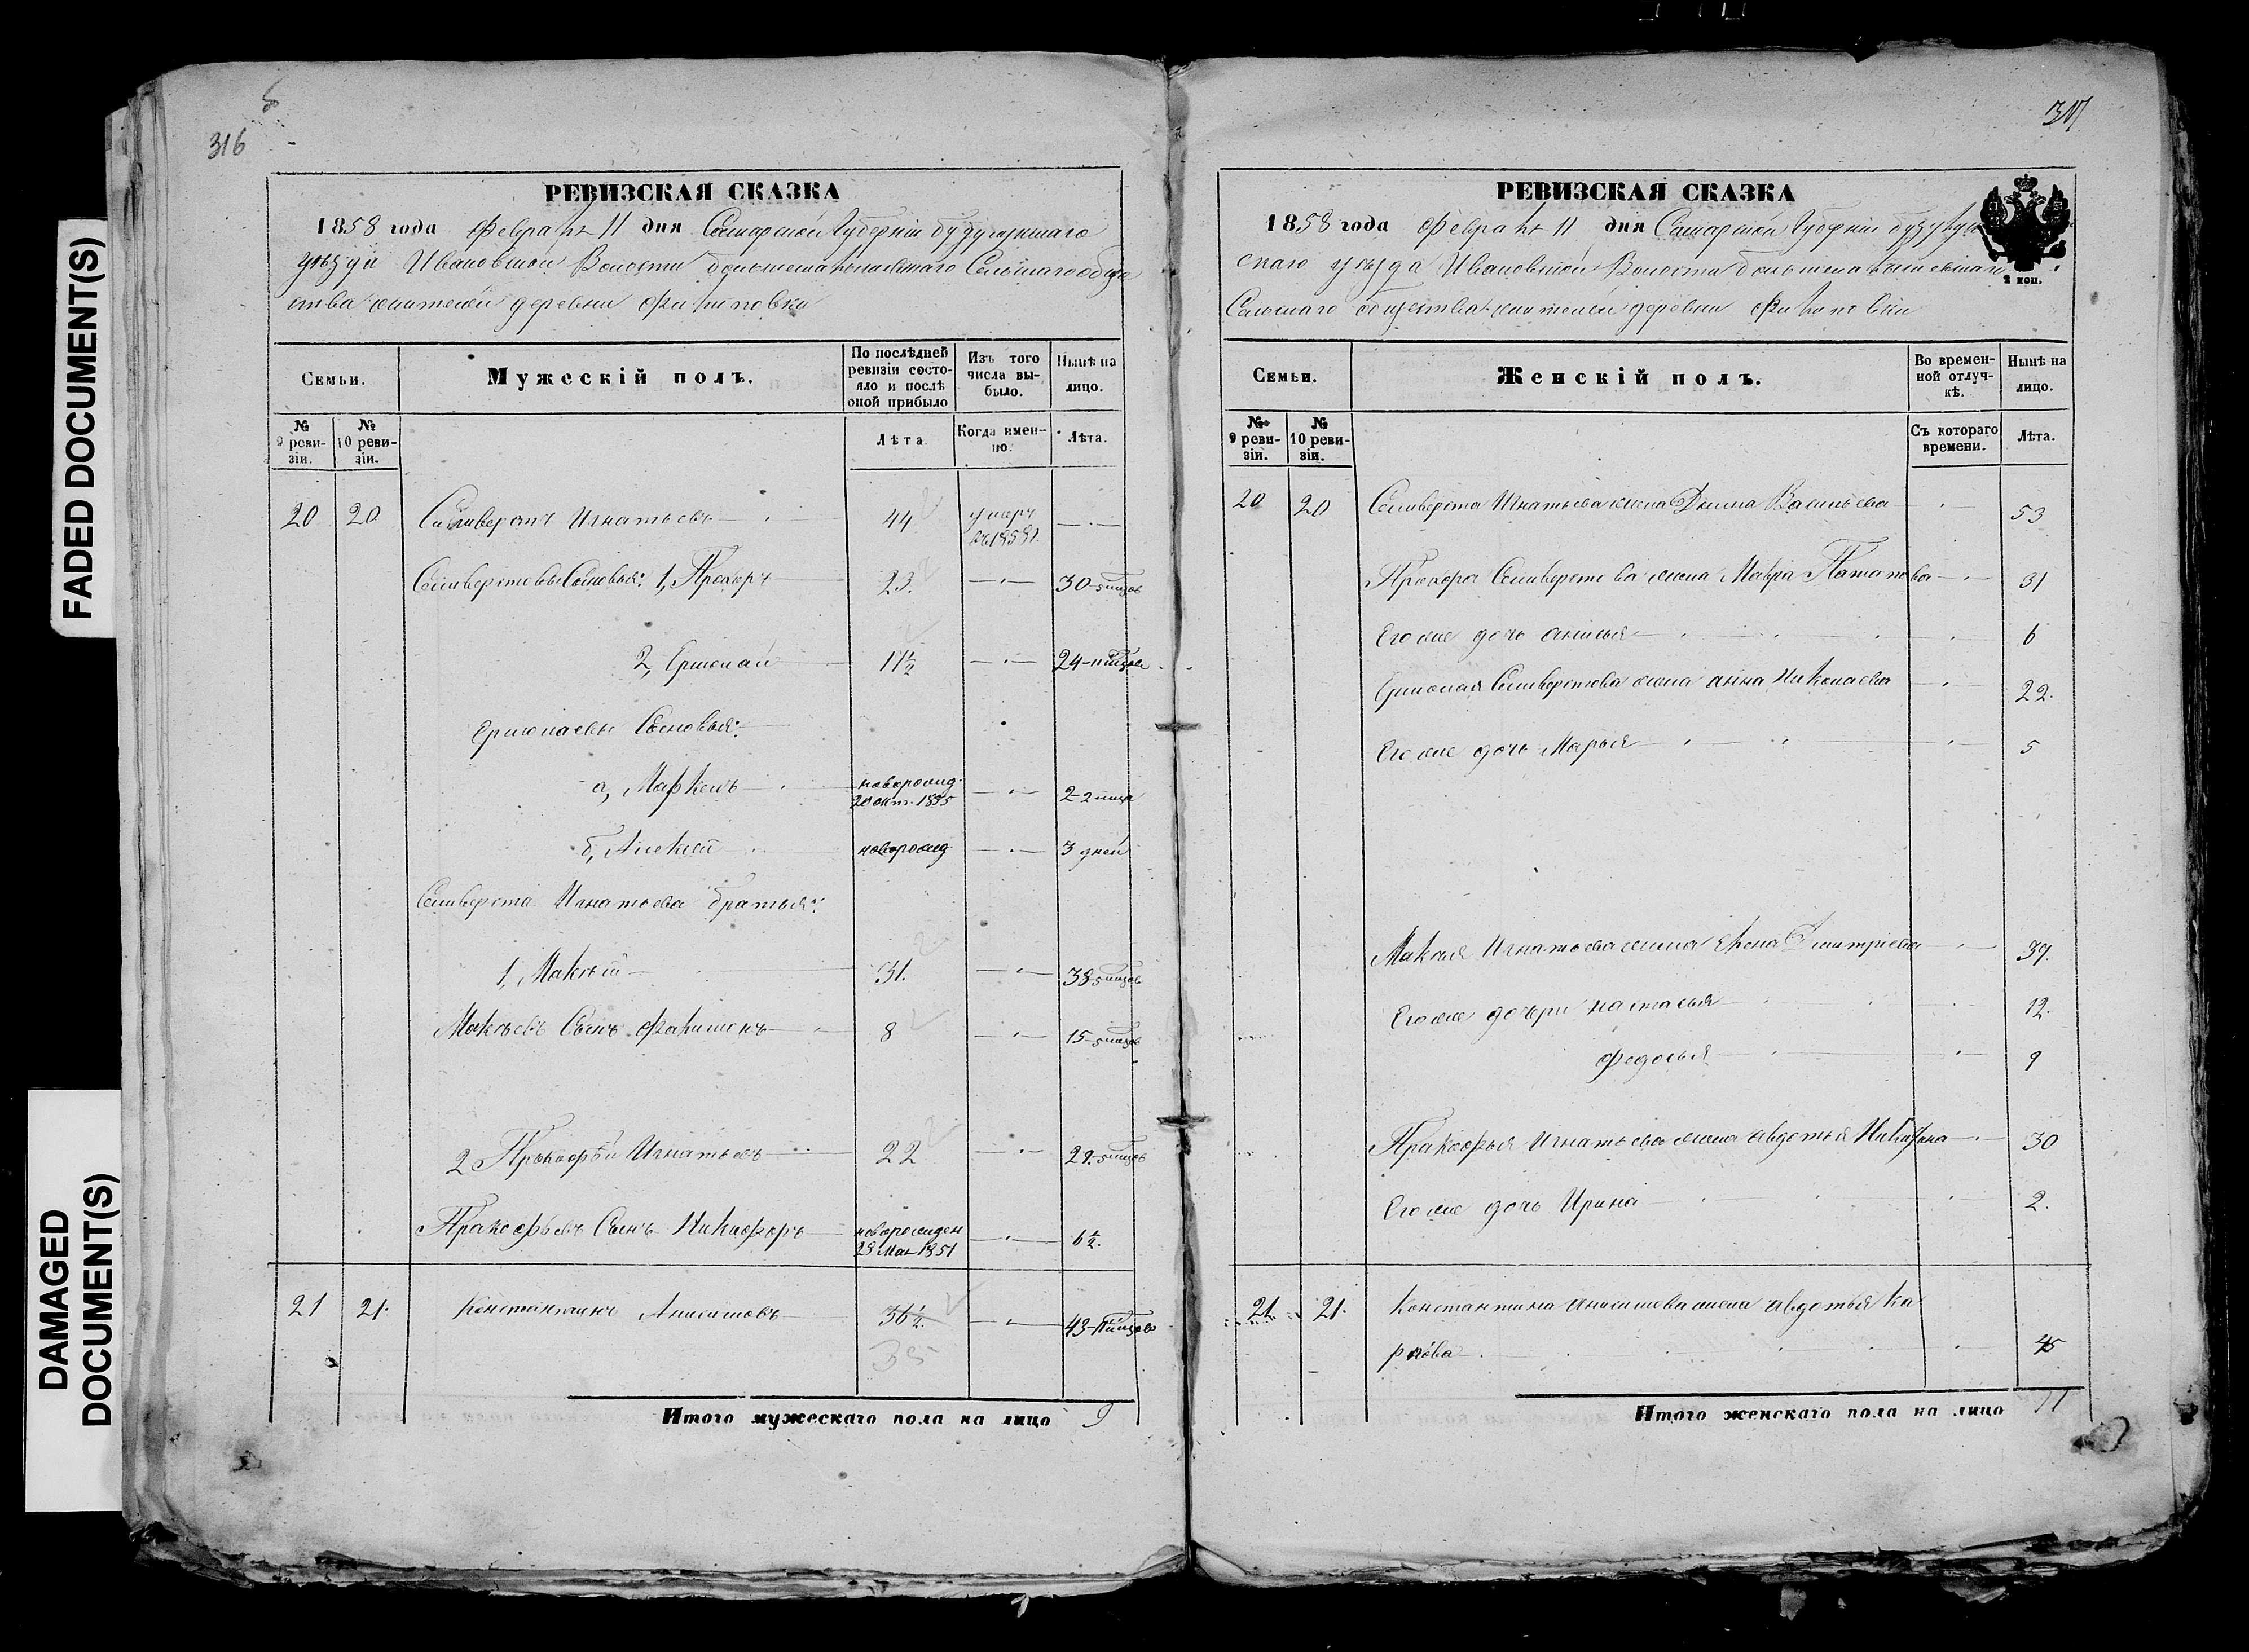 FADED DOCUMENT(S)
DAMAGED
DOCUMENT(S)
316
РЕВИЗСКАЯ СКАЗКА
1858 года февраля 11 дня Самарской Губернии Бузулукскаго
уезда Ивановской Волости Сельскаго общес
тва жителей деревни Филиповки
Семьи.
Мужескій полъ.
По послѣдней ревизіи состояло и послѣ оной прибыло
Изъ того числа выбыло.
Нынѣ на лицо.
№ 9 ревизіи.
№ 10 ревизіи.
Лѣта
Когда именно.
Лѣта.
20 20 Селиверстъ Игнатьевъ 44 умеръ
Селиверстовы Сыновья: 1, Прохоръ 23. 30
2, Ермолай 17½ 24
Ермолаевы Сыновья:
а, Маркелъ новорожд. 20 окт. 1855 2
б, Алексей новорожд 3 дней
Селиверста Игнатьева братья:
1, Мокей 31. 38
Мокеевъ Сынъ Филимонъ 8 15
2 Прокофей Игнатьевъ 22 29
Прокофьевъ Сынъ Никифоръ новорожден 28 Мая 1851 6½.
21 21. Константинъ Анисимовъ 36½. 43
35
Итого мужескаго пола на лицо 9
317
РЕВИЗСКАЯ СКАЗКА
1858 года февраля 11 дня Самарской Губернии Бузулук
скаго уезда Ивановской Волости
Сельскаго общества жителей деревни Филиповки
2 коп.
Семьи.
Женскій полъ.
Во временной отлучкѣ.
Нынѣ на лицо.
№ 9 ревизіи.
№ 10 ревизіи.
Съ котораго времени.
Лѣта.
20 20 Селиверста Игнатьева жена Домна Васильева 53
Прохора Селиверстова жена Мавра Патапова 31
Его же дочь Анисья 6
Ермолая Селиверстова жена Анна Николаева 22.
Его же дочь Марья 5
Мокея Игнатьева жена Елена Дмитріева 37.
Его же дочери Настасья 12.
Федосья 9
Прокофья Игнатьева жена Авдотья Никифорова 30
Его же дочь Ирина 2.
21 21. Константина Анисимова жена Авдотья Ка
рпова 45
Итого женскаго пола на лицо 11